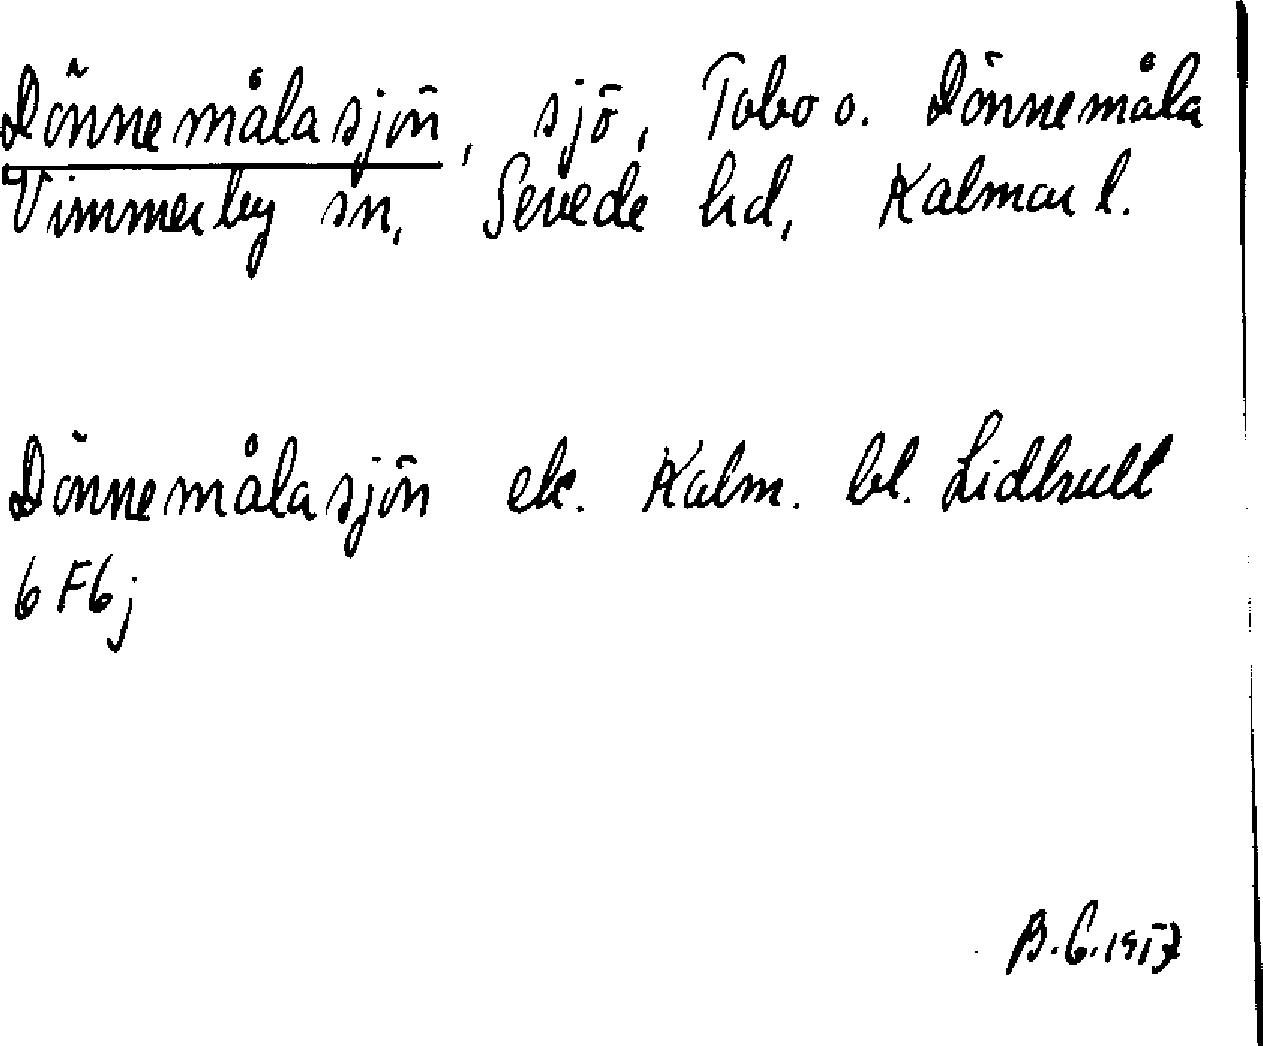 Dönnemålasjön, sjö, Tobo o. Dönnemåla
Vimmerby sn, Sevede hd, Kalmar l.
Dönnemålasjön ek. Kalm. bl. Lidhult
6 F6j
B.G. 1957